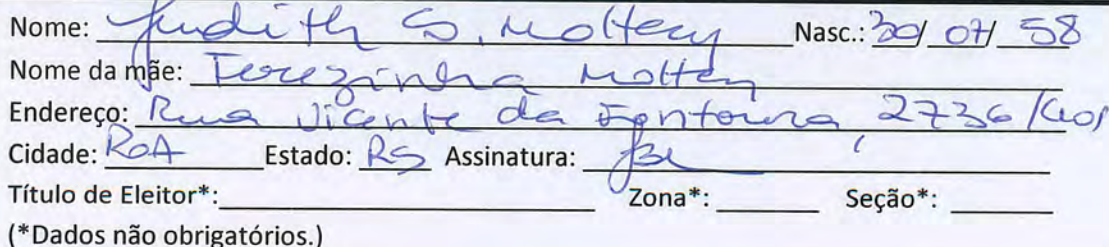 Nome: Judith S. Nasc.: 30/07/58
Nome da mãe: Terezinha
Endereço: Rua Vicente da Fontoura, 2736/
Cidade: POA Estado: RS Assinatura:
Título de Eleitor*: Zona*: Seção*:
(*Dados não obrigatórios.)